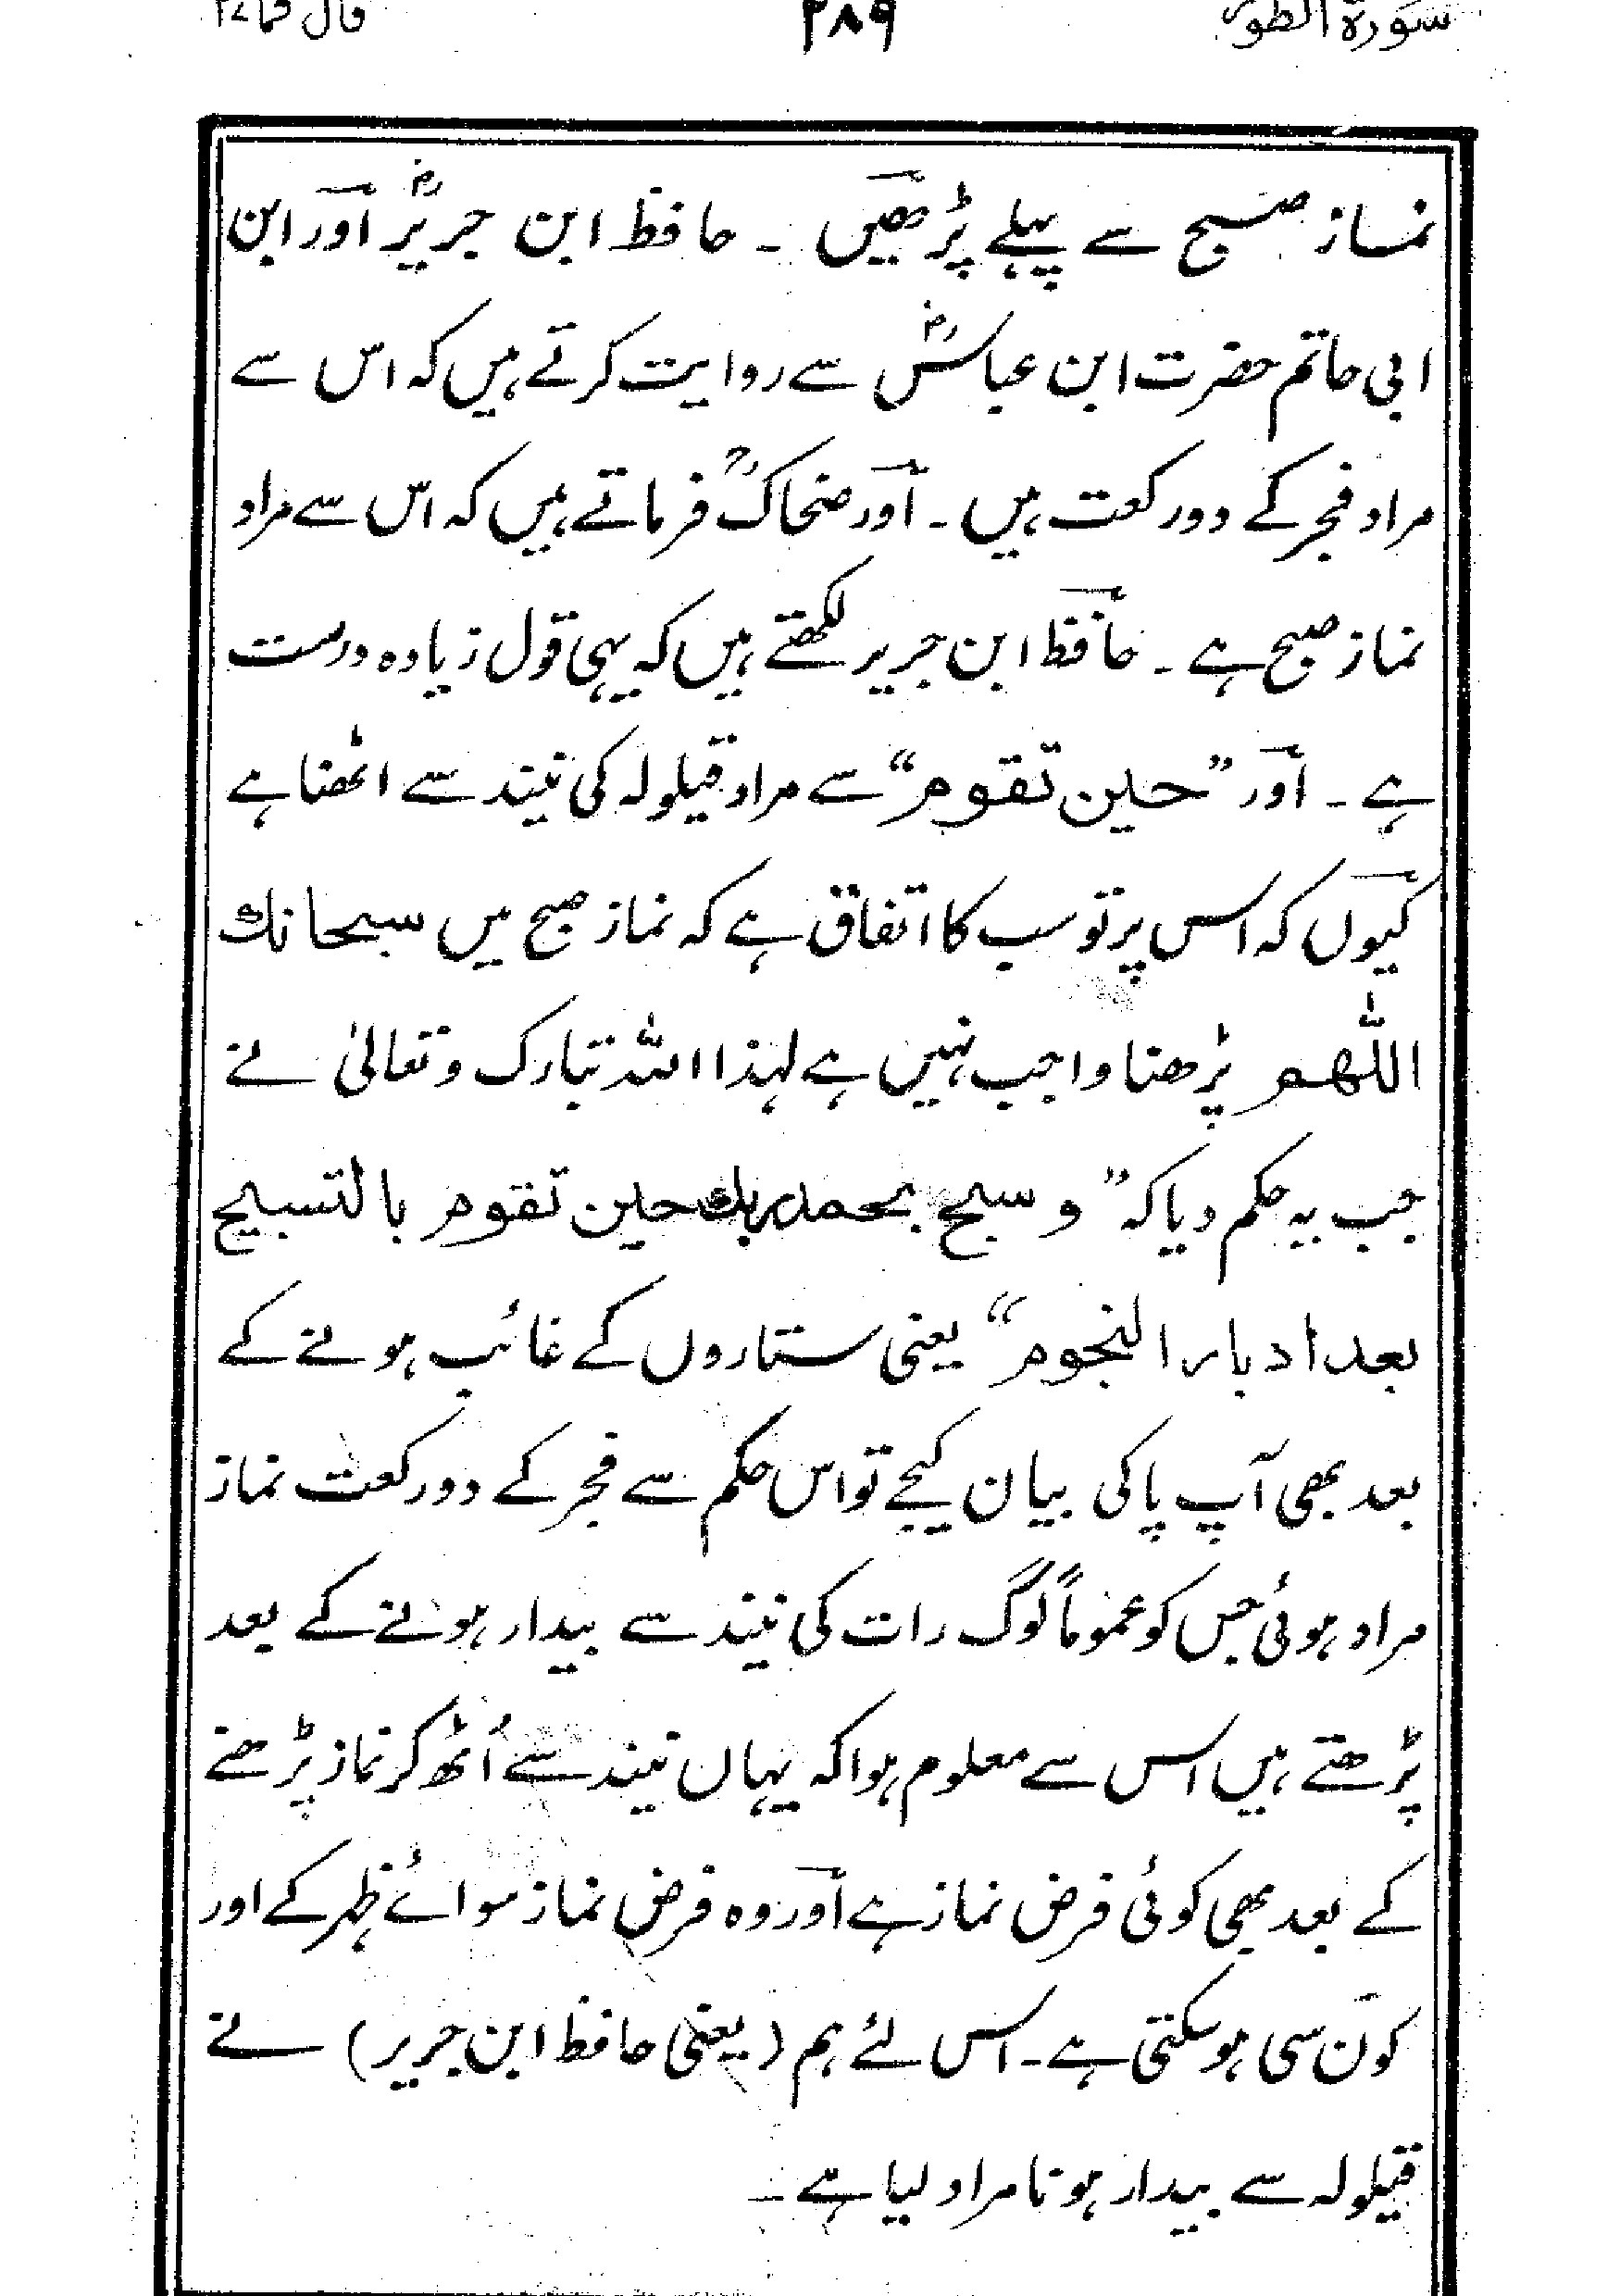 سورۃ الطور ۳۸۹ قال فما ۲۷
نماز صبح سے پہلے پڑھیں ۔ حافظ ابن جریرؒ اور ابن
ابی حاتم حضرت ابن عباسؓ سے روایت کرتے ہیں کہ اس سے
مراد فجر کے دو رکعت ہیں ۔ اور ضحاکؒ فرماتے ہیں کہ اس سے مراد
نماز صبح ہے ۔ حافظ ابن جریر لکھتے ہیں کہ یہی قول زیادہ درست
ہے ۔ اور ”حین تقوم“ سے مراد قیلولہ کی نیند سے اٹھنا ہے
کیوں کہ اس پر تو سب کا اتفاق ہے کہ نماز صبح میں سبحانک
اللّٰھم پڑھنا واجب نہیں ہے لہذا اللہ تبارک و تعالیٰ نے
جب یہ حکم دیا کہ ”وسبح بحمد ربك حین تقوم بالتسبیح
بعد ادبار النجوم“ یعنی ستاروں کے غائب ہونے کے
بعد بھی آپ پاکی بیان کیجے تو اس حکم سے فجر کے دو رکعت نماز
مراد ہوئی جس کو عموماً لوگ رات کی نیند سے بیدار ہونے کے بعد
پڑھتے ہیں اس سے معلوم ہوا کہ یہاں نیند سے اُٹھ کر نماز پڑھنے
کے بعد بھی کوئی فرض نماز ہے اور وہ فرض نماز سوائے ظہر کے اور
کون سی ہو سکتی ہے ۔ اس لئے ہم (یعنی حافظ ابن جریر) نے
قیلولہ سے بیدار ہونا مراد لیا ہے ۔